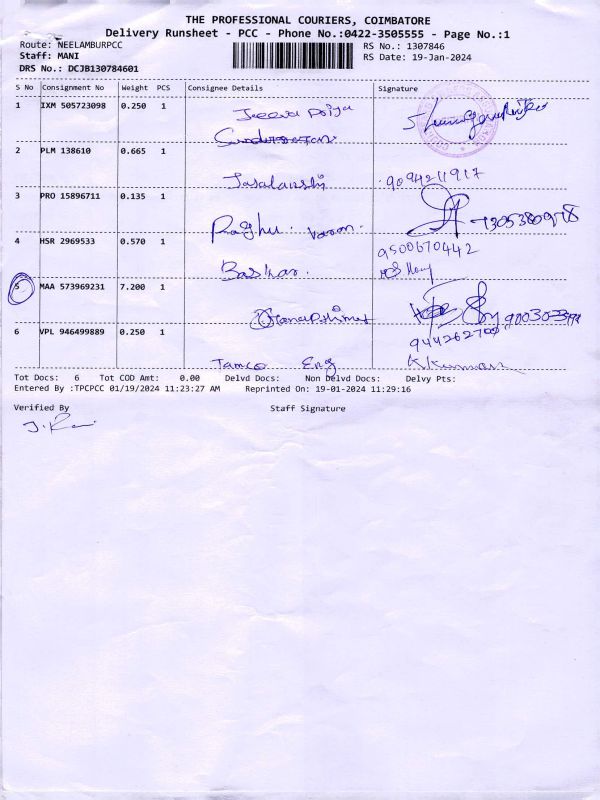 THE PROFESSIONAL COURIERS, COIMBATORE
Delivery Runsheet - PCC - Phone No.:0422-3505555 - Page No.:1
Route: NEELAMBURPCC RS No.: 1307846
Staff: MANI RS Date: 19-Jan-2024
DRS No.: DCJB130784601
S No Consignment No Weight PCS Consignee Details Signature
1 IXM 505723098 0.250 1
2 PLM 138610 0.665 1
9094211917
3 PRO 15896711 0.135 1
Raghu. 7305380978
4 HSR 2969533 0.570 1 9500670442
Baskar.
5 MAA 573969231 7.200 1
6 VPL 946499889 0.250 1
Tamco Eng K.Kumaran
Tot Docs: 6 Tot COD Amt: 0.00 Delvd Docs: Non Delvd Docs: Delvy Pts:
Entered By :TPCPCC 01/19/2024 11:23:27 AM Reprinted On: 19-01-2024 11:29:16
Verified By Staff Signature